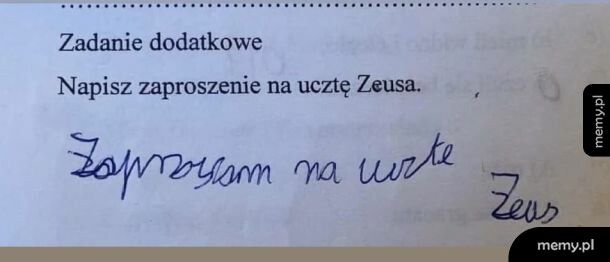 Zadanie dodatkowe
Napisz zaproszenie na ucztę Zeusa.
Zapraszam na uczte
Zeus
memy.pl
memy.pl